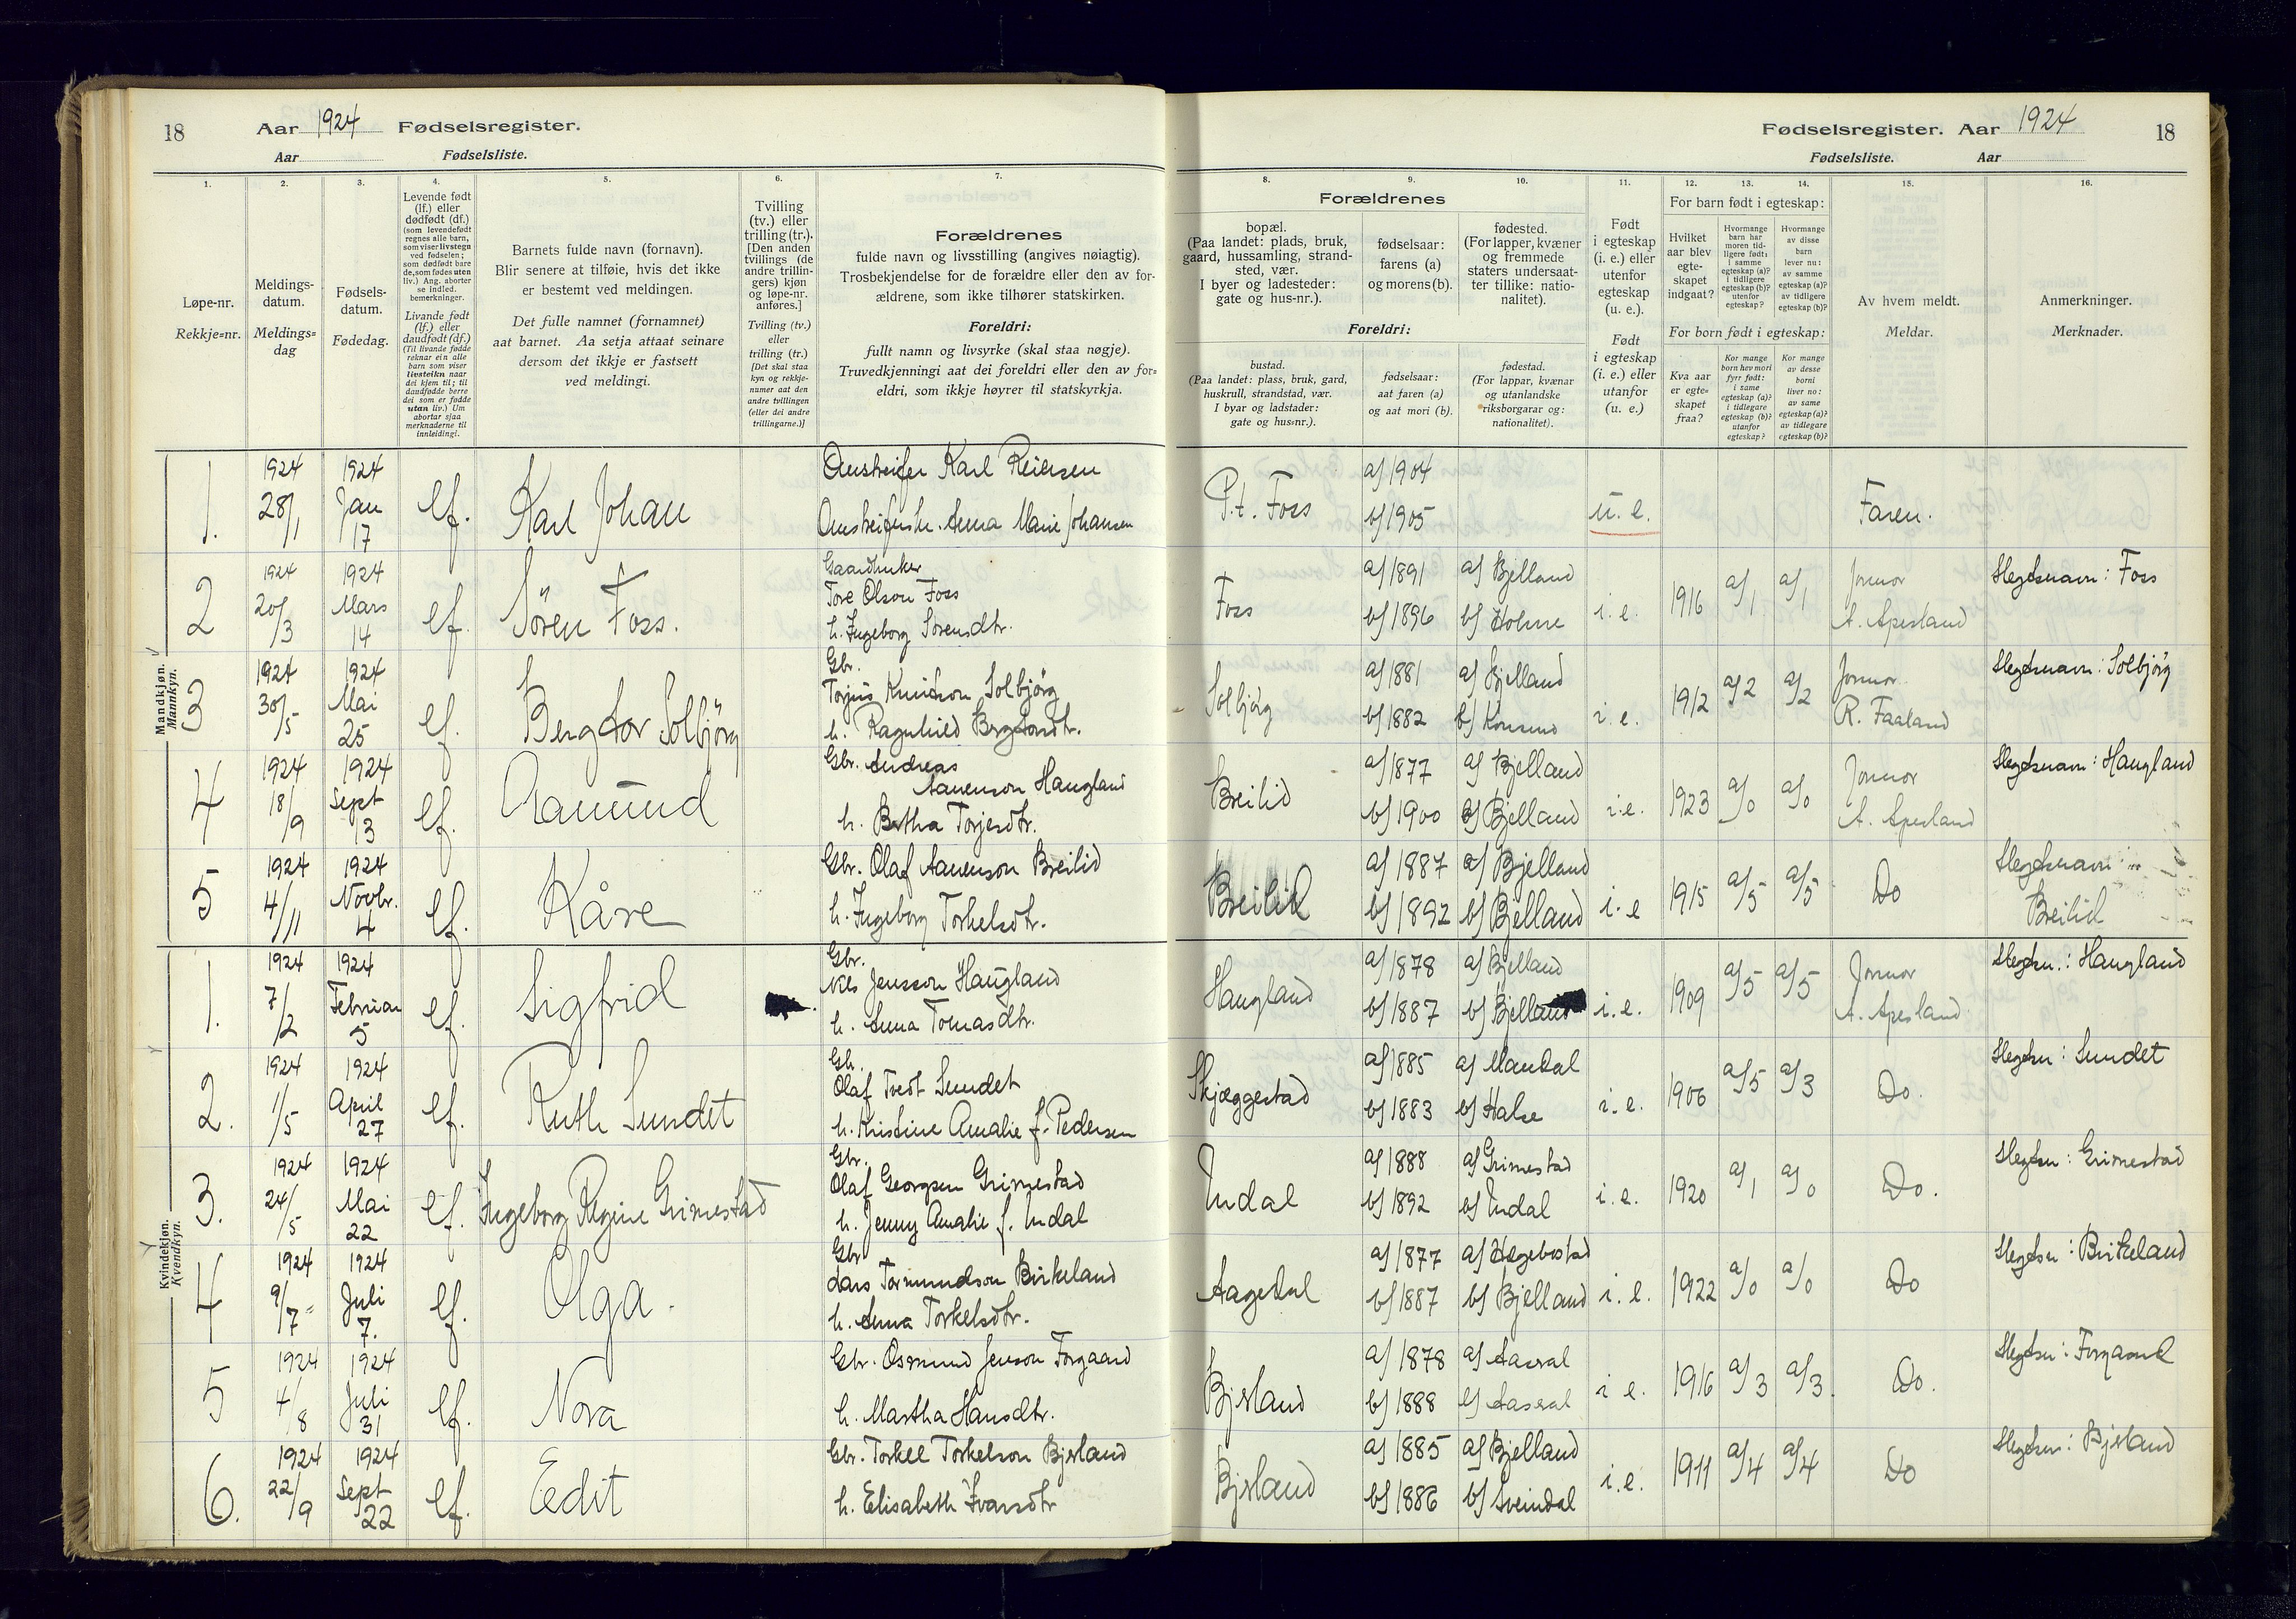 18
Aar 1924 Fødselsregister.
Aar Fødselsliste.
1.
2.
3.
4.
5.
6.
7.
Løpe-nr.
Rekkje=nr.
Meldings-
datum.
Meldings=
dag
Fødsels-
datum.
Fødedag.
Levende født
(lf.) eller
dødfødt (df.)
(som levendefødt
regnes alle barn,
som viser livstegn
ved fødselen;
som dødfødt bare
de, som fødes uten
liv.) Ang. aborter
se indled.
bemerkninger.
Livande født
(lf.) eller
daudfødt (df.)
(Til livande fødde
reknar ein alle
barn som viser
livsteikn naar
dei kjem til; til
daudfødde berre
dei som er fødde
utan liv.) Um
abortar sjaa
merknaderne til
innleidingi.
Barnets fulde navn (fornavn).
Blir senere at tilføie, hvis det ikke
er bestemt ved meldingen.
Det fulle namnet (fornamnet)
aat barnet. Aa setja attaat seinare
dersom det ikkje er fastsett
ved meldingi.
Tvilling
(tv.) eller
trilling (tr.).
[Den anden
tvillings (de
andre trillin-
gers) kjøn
og løpe-nr.
anføres.]
Tvilling (tv.)
eller
trilling (tr.)
[Det skal staa
kyn og rekkje-
numer aat den
andre tvillingen
(eller dei andre
trillingarne.)]
Forældrenes
fulde navn og livsstilling (angives nøiagtig).
Trosbekjendelse for de forældre eller den av for-
ældrene, som ikke tilhører statskirken.
Foreldri:
fullt namn og livsyrke (skal staa nøgje).
Truvedkjenningi aat dei foreldri eller den av for=
eldri, som ikkje høyrer til statskyrkja.
Mandkjøn.
Mannkyn.
1.
1924
28/1
1924
Jan
17
lf.
Karl Johan
Omstreifer Karl Reiersen
Omstreiferske Anna Marie Johansen
2
1924
20/3
1924
Mars
14
lf.
Sören Foss.
Gaardbruker
Tore Olson Foss
h. Ingeborg Sörensdtr.
3
1924
30/5
1924
Mai
25
lf.
Bergtor Solbjörg
Gbr.
Torjus Knutson Solbjörg
h. Ragnhild Bergtorsdtr.
4
1924
18/9
1924
Sept
13
lf.
Aamund
Gbr. Andreas
Aanenson Haugland
h. Bertha Torjesdtr.
5
1924
4/11
1924
Novbr.
4
lf.
Kåre
Gbr. Olaf Aanenson Breilid
h. Ingeborg Torkelsdtr.
Kvindekjøn.
Kvendkyn.
1.
1924
7/2
1924
Februar
5
lf.
Sigfrid
Gbr.
Nils Jensson Haugland
h. Anna Tomasdtr.
2.
1924
1/5
1924
April
27
lf.
Ruth Sundet
Gbr.
Olaf Tvedt Sundet
h. Kristine Amalie f. Pedersen
3.
1924
24/5
1924
Mai
22
lf.
Ingeborg Regine Grimestad
Gbr.
Olaf Georgsen Grimestad
h. Jenny Amalie f. Indal
4
1924
9/7
1924
Juli
7.
lf.
Olga.
Gbr
Lars Tormundson Birkeland
h. Anna Torkelsdtr.
5
1924
4/8
1924
Juli
31
lf.
Nora
Gbr. Osmund Jenson Forgaard
h. Martha Hansdtr.
6.
1924
22/9
1924
Sept
22
lf.
Edit
Gbr. Torkel Torkelson Bjerland
h. Elisabeth Ivarsdtr
Fødselsregister. Aar 1924
18
Fødselsliste. Aar
8.
9.
10.
11.
12.
13.
14.
15.
16.
Forældrenes
bopæl.
(Paa landet: plads, bruk,
gaard, hussamling, strand-
sted, vær.
I byer og ladesteder:
gate og hus-nr.).
fødselsaar:
farens (a)
og morens (b).
fødested.
(For lapper, kvæner
og fremmede
staters undersaat-
ter tillike: natio-
nalitet).
Foreldri:
bustad.
(Paa landet: plass, bruk, gard,
huskrull, strandstad, vær.
I byar og ladstader:
gate og hus=nr.).
fødselsaar:
aat faren (a)
og aat mori (b).
fødestad.
(For lappar, kvænar
og utanlandske
riksborgarar og:
nationalitet).
Født
i egteskap
(i. e.) eller
utenfor
egteskap
(u. e.).
Født
i egteskap
(i. e.) eller
utanfor
(u. e.)
For barn født i egteskap:
Hvilket
aar blev
egte-
skapet
indgaat?
Hvormange
barn har
moren tid-
ligere født:
i samme
egteskap (a)?
i tidligere
egteskap (b)?
utenfor
egteskap?
Hvormange
av disse
barn
lever nu:
av samme
egteskap (a)?
av tidligere
egteskap (b)?
For born født i egteskap:
Kva aar
er egte-
skapet
fraa?
Kor mange
born hev mori
fyrr født:
i same
egteskap (a)?
i tidlegare
egteskap (b)?
utanfor
egteskap?
Kor mange
av desse
borni
liver no:
av same
egteskap (a)?
av tidlegare
egteskap (b)?
Av hvem meldt.
Meldar.
Anmerkninger.
Merknader.
P.t. Foss
a) 1904
b) 1905
u. e.
Faren.
Foss
a) 1891
b) 1896
a) Bjelland
b) Holme
i. e.
1916
a/1
a/1
Jormor
A. Apesland
Slegtsnavn: Foss
Solbjörg
a) 1881
b) 1882
a) Bjelland
b) Konsmo
i. e.
1912
a/2
a/2
Jormor
R. Faaland
Slegtsnavn: Solbjörg
Breilid
a) 1877
b) 1900
a) Bjelland
b) Bjelland
i. e.
1923
a/0
a/0
Jormor
A. Apesland
Slegtsnavn: Haugland
Breilid
a) 1887
b) 1892
a) Bjelland
b) Bjelland
i. e
1915
a/5
a/5
Do
Slegtsnavn:
Breilid
Haugland
a) 1878
b) 1887
a) Bjelland
b) Bjelland
i. e.
1909
a/5
a/5
Jormor
A. Apesland
Slegtsn.: Haugland
Skjæggestad
a) 1885
b) 1883
a) Mandal
b) Halse
i. e.
1906
a/5
a/3
Do.
Slegtsn: Sundet
Indal
a) 1888
b) 1892
a) Grimestad
b) Indal
i. e.
1920
a/1
a/0
Do.
Slegtsn: Grimestad
Aagedal
a) 1877
b) 1887
a) Hegebostad
b) Bjelland
i. e.
1922
a/0
a/0
Do
Slegtsn: Birkeland
Bjerland
a) 1878
b) 1888
a) Aaseral
b) Aaseral
i e.
1916
a/3
a/3.
Do.
Slegtsn: Forgaard
Bjerland
a) 1885
b) 1886
a) Bjelland
b) Sveindal
i. e.
1911
a/4
a/4
Do
Slegtsn: Bjerland